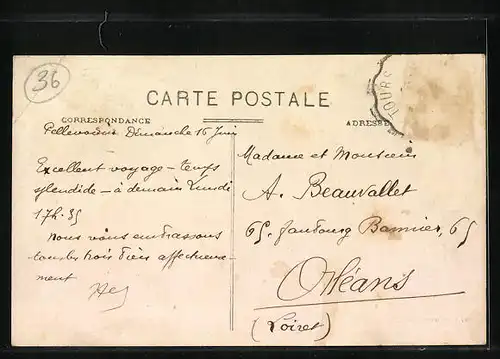 36
CARTE POSTALE
TOURS
CORRESPONDANCE
ADRESSE
Pellevoisin Dimanche 16 Juin
Excellent voyage — temps
splendide — à demain Lundi
17h.35
Nous vous embrassons
tous les trois bien affectueuse-
ment
Madame et Monsieur
A. Beauvallet
65, faubourg Bannier, 65
Orléans
(Loiret)